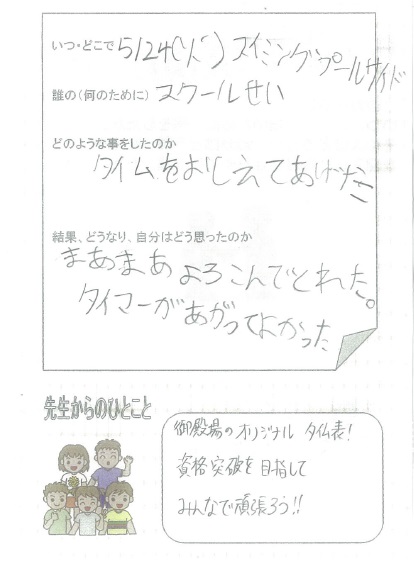 いつ・どこで 5/24(ど) スイミングプールサイド
誰の(何のために) スクールせい
どのような事をしたのか
タイムをおしえてあげた
結果、どうなり、自分はどう思ったのか
まあまあ よろこんでとれた。
タイマーがあがってよかった
先生からのひとこと
御殿場のオリジナル タイム表!
資格突破を目指して
みんなで頑張ろう!!